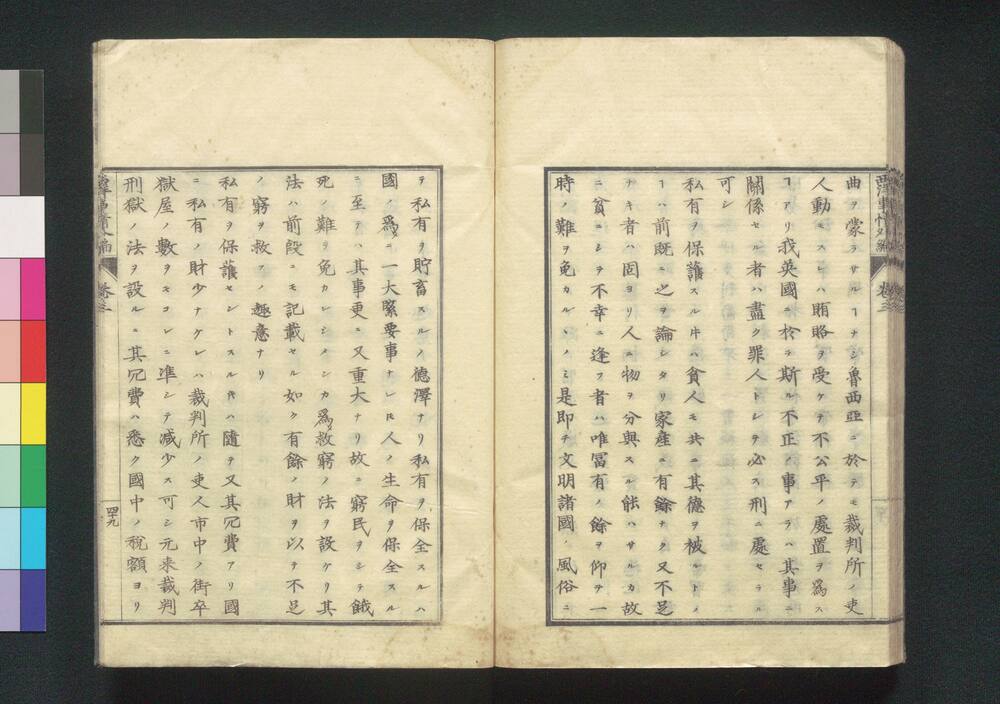 西洋事情外編 卷之三
曲ヲ蒙ラサルヿナシ魯西亞ニ於テモ裁判所ノ吏
人動モスレハ賄賂ヲ受ケテ不公平ノ處置ヲ爲ス
ヿアリ我英國ニ於テ斯ル不正ノ事アラハ其事ニ
關係セル者ハ盡ク罪人トシテ必ス刑ニ處セラル
可シ
私有ヲ保護スル𪜈ハ貧人モ共ニ其德ヲ被ルトノ
ヿハ前既ニ之ヲ論シタリ家産ニ有餘ナク又不足
ナキ者ハ固ヨリ人ニ物ヲ分與スル能ハサルカ故
ニ貧ニシテ不幸ニ逢フ者ハ唯冨有ノ餘ヲ仰テ一
時ノ難ヲ免カルヽノミ是即チ文明諸國ノ風俗ニ
ヲ私有ヲ貯畜スルノ德澤ナリ私有ヲ保全スルハ
國ノ爲ニ一大緊要事ナレ𪜈人ノ生命ヲ保全スル
ニ至テハ其事更ニ又重大ナリ故ニ窮民ヲシテ餓
死ノ難ヲ免カレシメンカ爲メ救窮ノ法ヲ設ケリ其
法ハ前段ニモ記載セル如ク有餘ノ財ヲ以テ不足
ノ窮ヲ救フノ趣意ナリ
私有ヲ保護セントスル𪜈ハ隨テ又其冗費アリ國
ニ私有ノ財少ナケレハ裁判所ノ吏人市中ノ街卒
獄屋ノ數ヲモコレニ凖シテ減少ス可シ元来裁判
刑獄ノ法ヲ設ルニ其冗費ハ悉ク國中ノ稅額ヨリ
西洋事情外編 卷之三
四十九